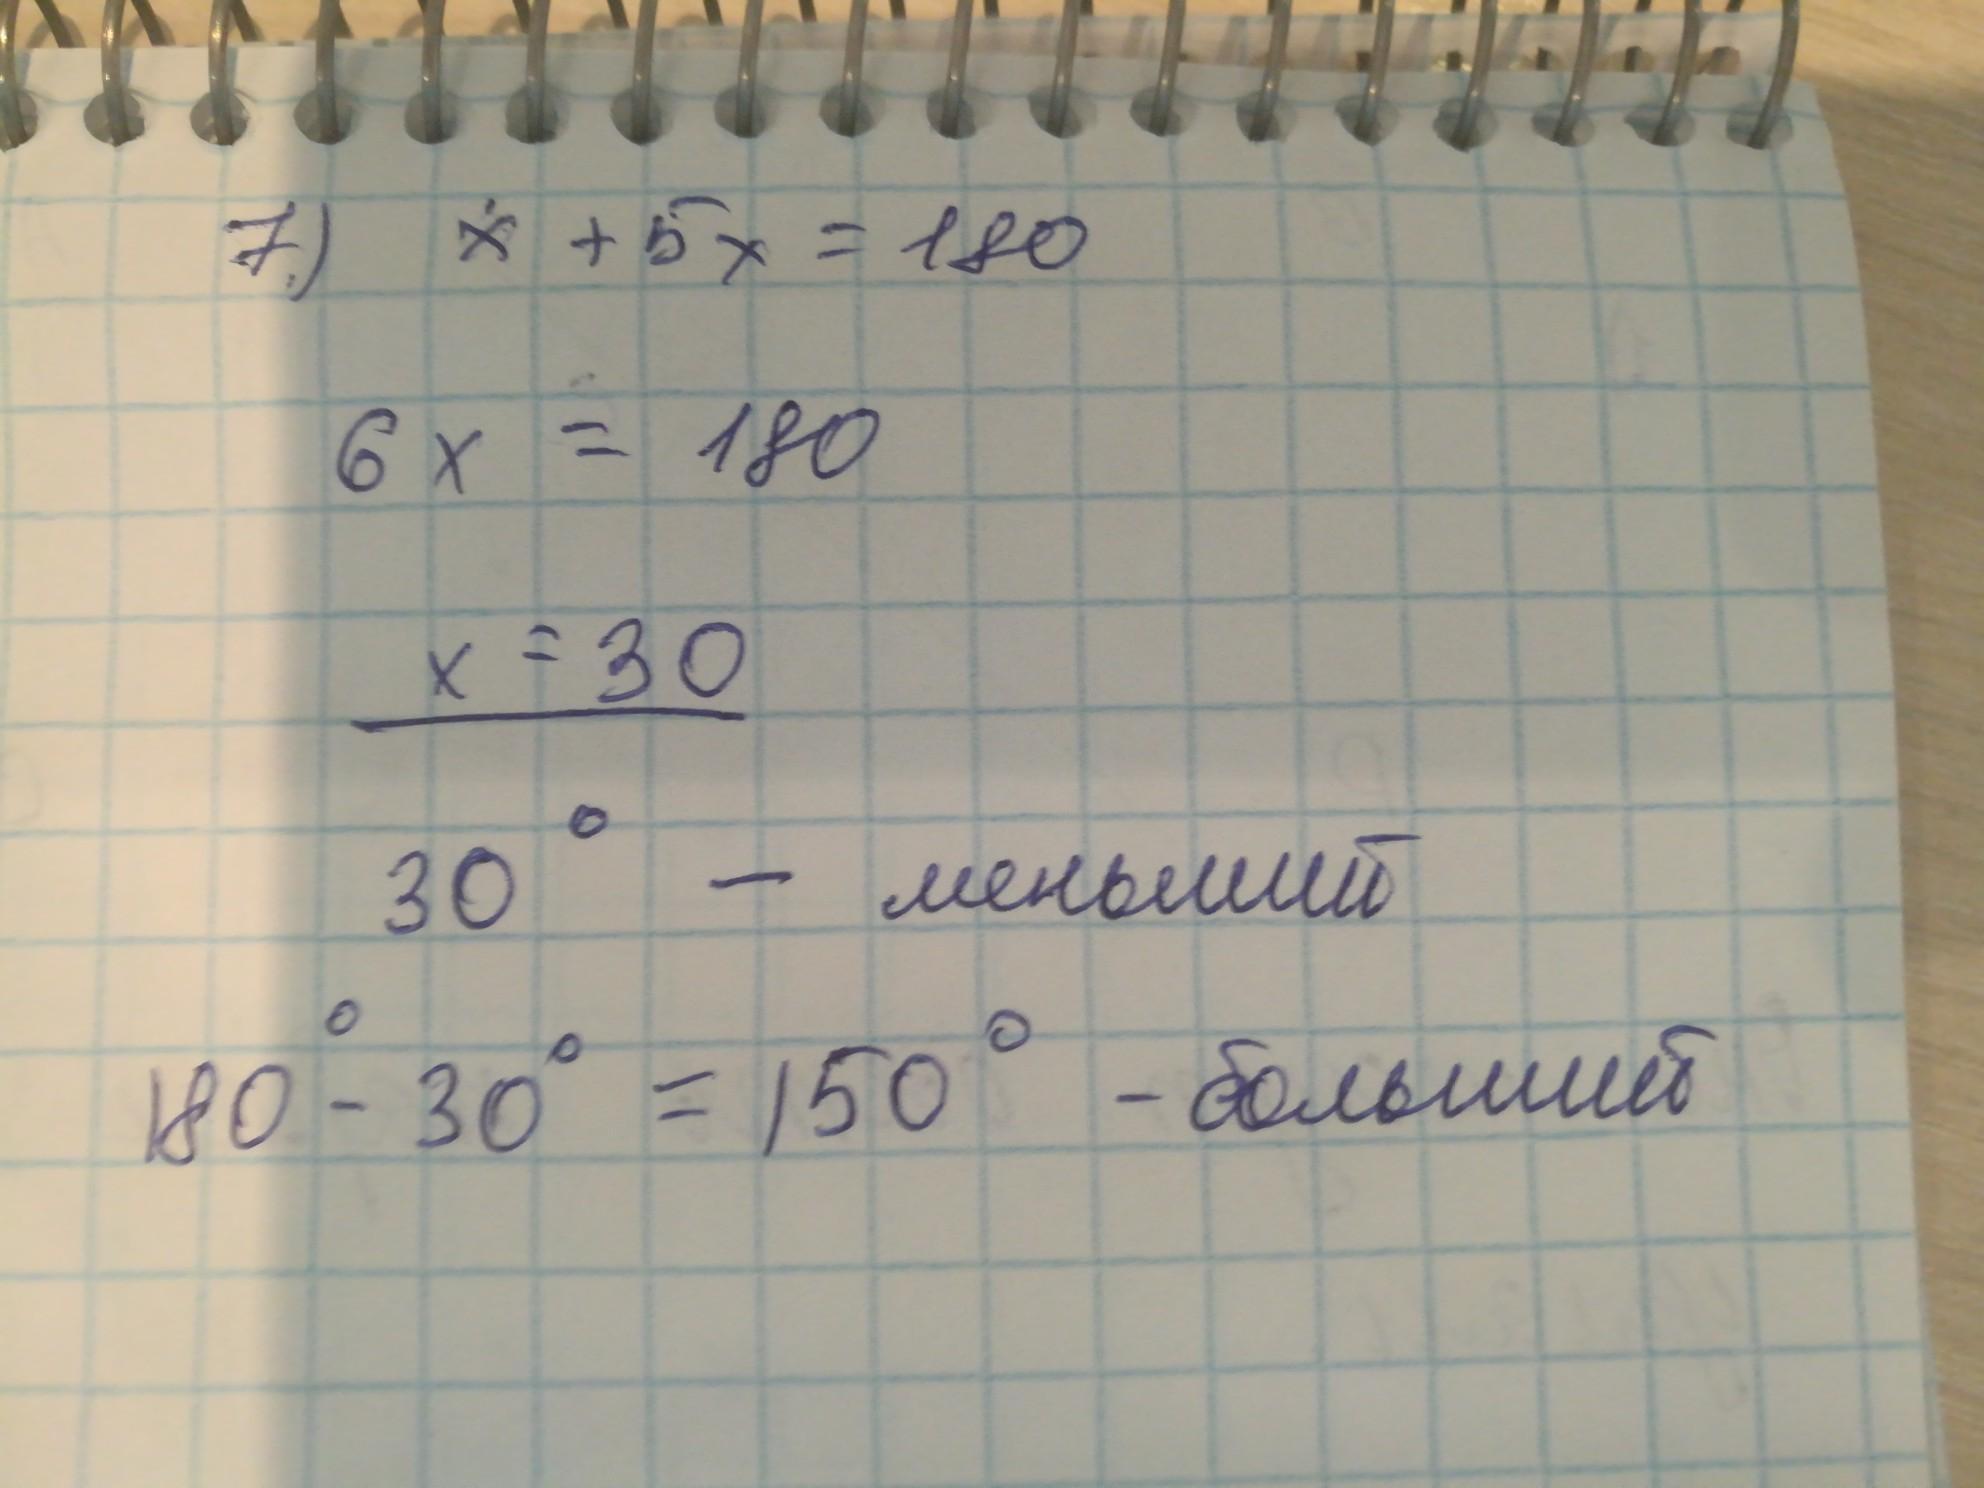 7.) x + 5x = 180
6x = 180
x = 30
30° - меньший
180° - 30° = 150° - больший